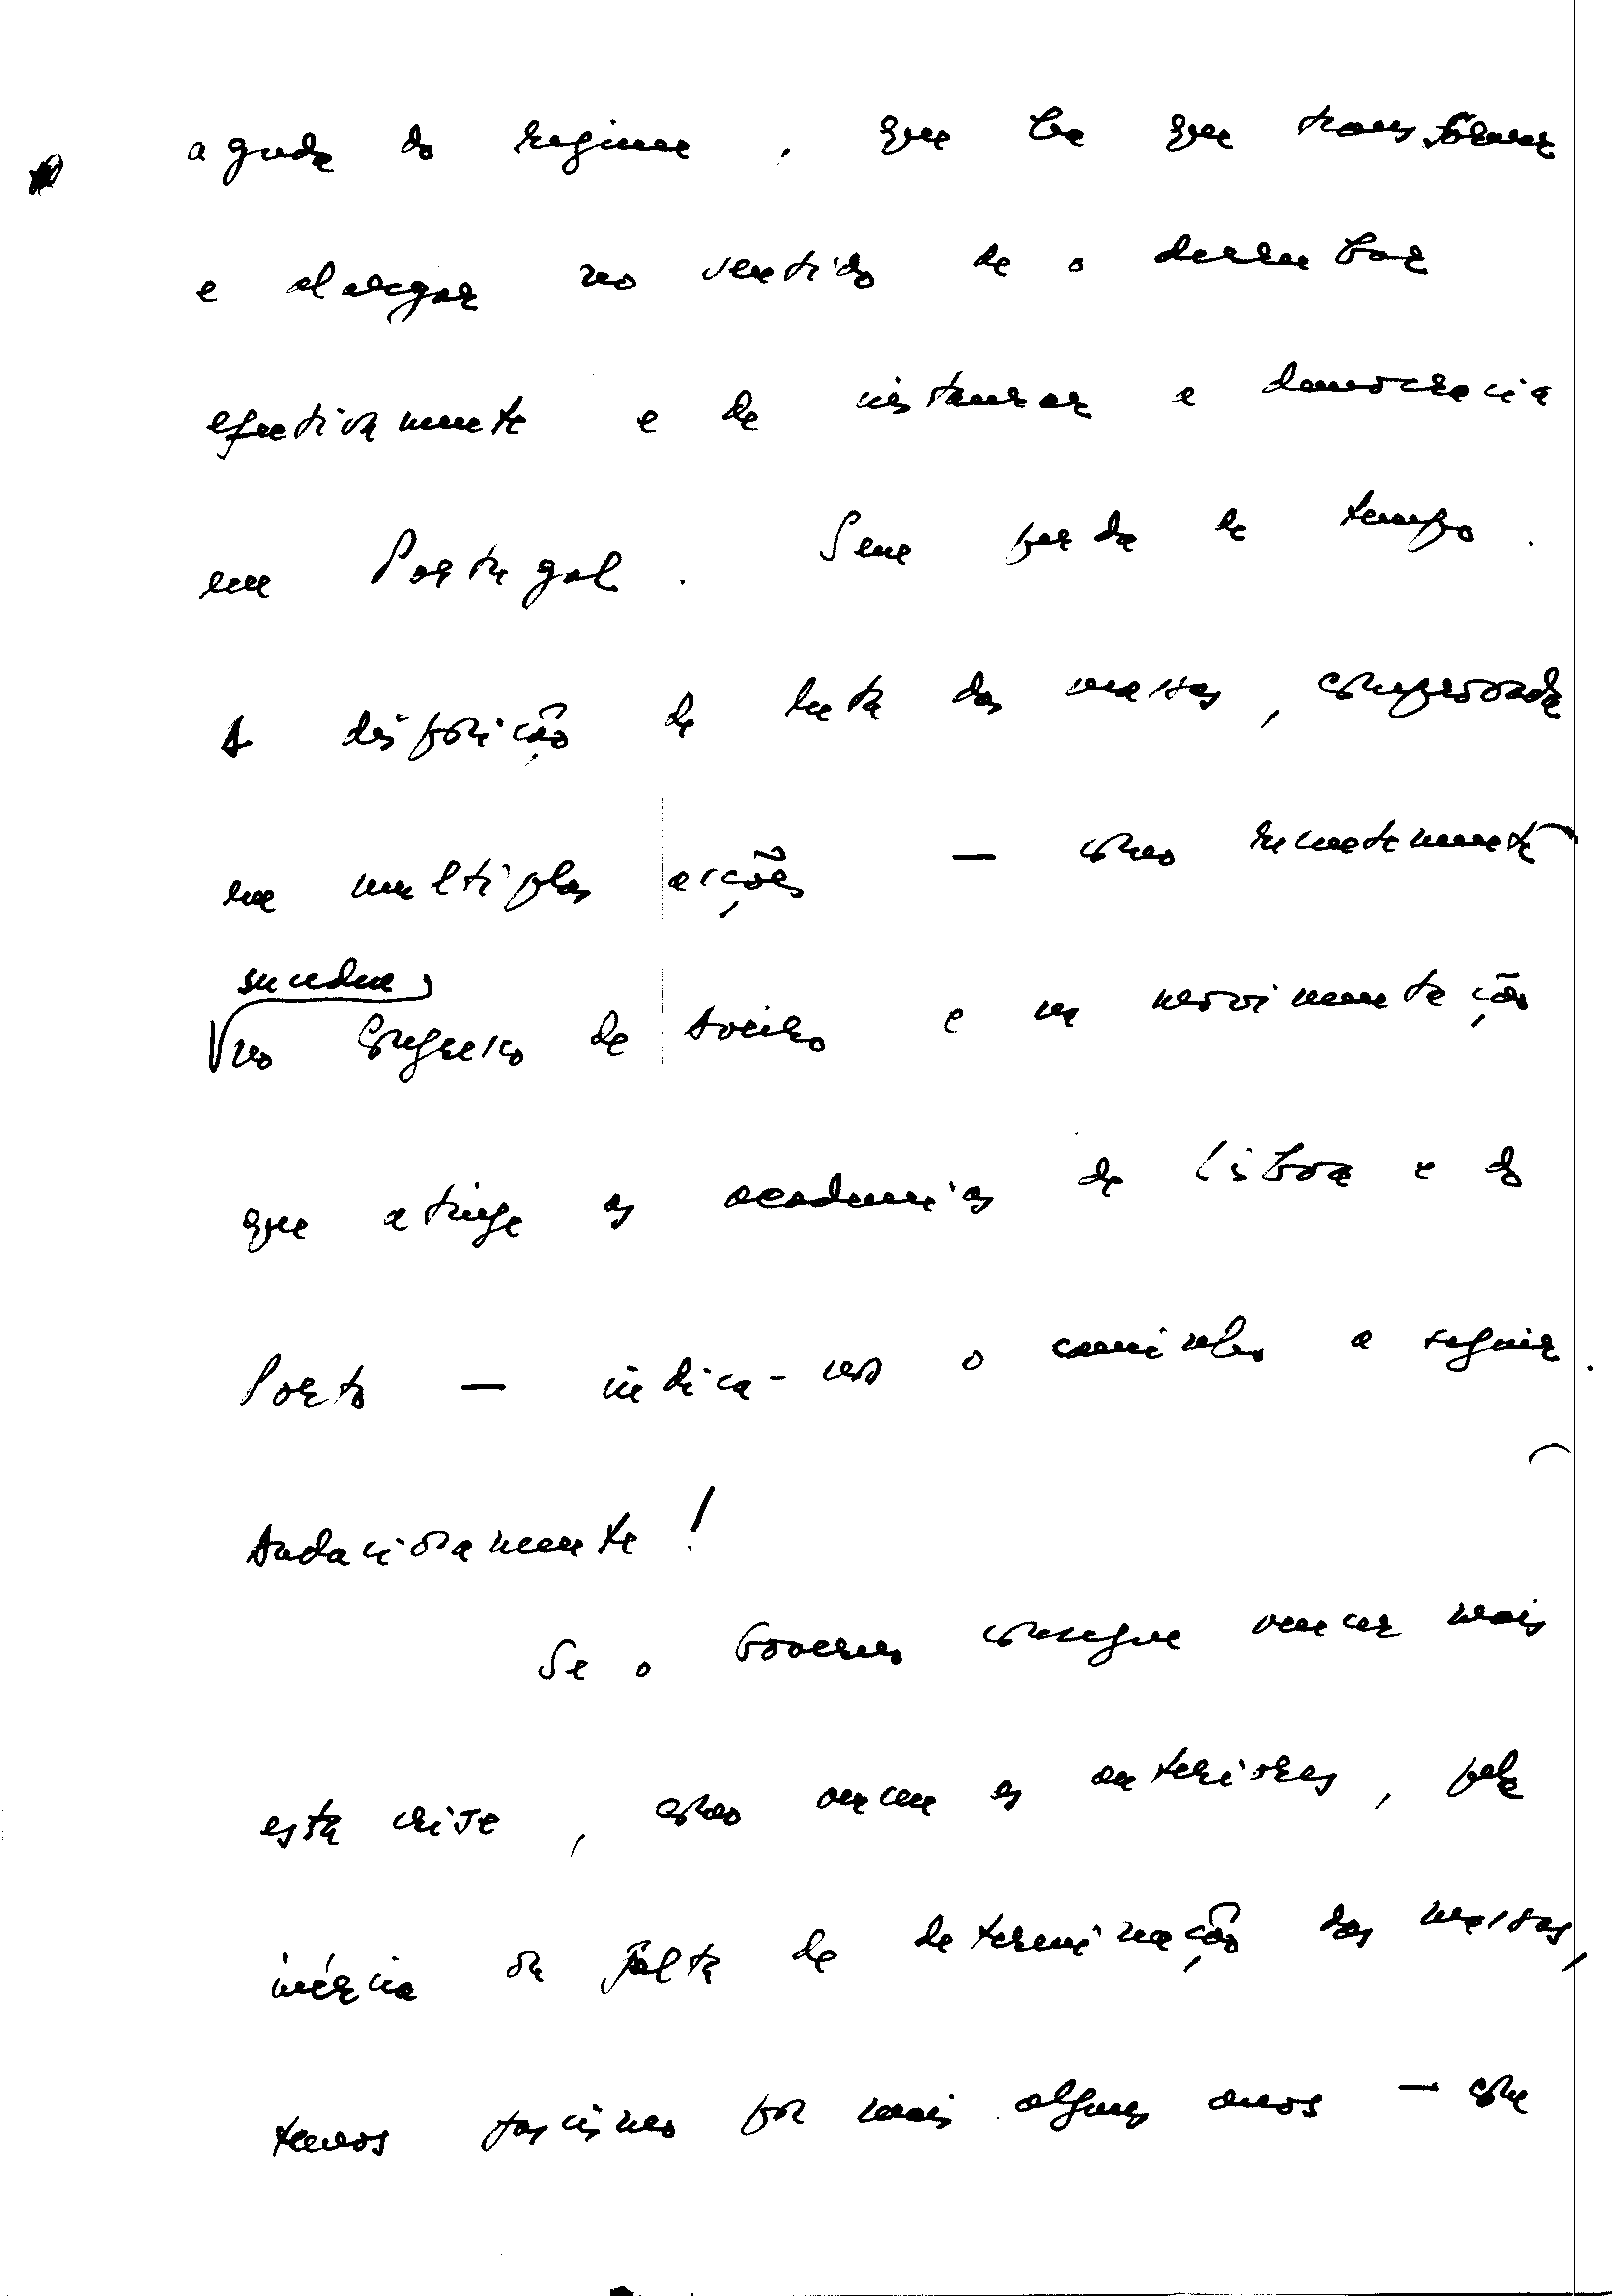 aguda do regime, que há que transformar
e alargar no sentido de o derrubar
efectivamente e de instaurar a democracia
em Portugal. Sem perda de tempo.
A disposição de luta das massas, comprovada
em multiplas acções — como recentemente
sucedeu
no Congresso de Aveiro e na movimentação
que atinge as academias de Lisboa e do
Porto — indica-nos o caminho a seguir.
Audaciosamente!
Se o Governo consegue vencer mais
esta crise, como venceu as anteriores, pela
inércia ou falta de determinação das massas,
temos fascismo por mais alguns anos — com